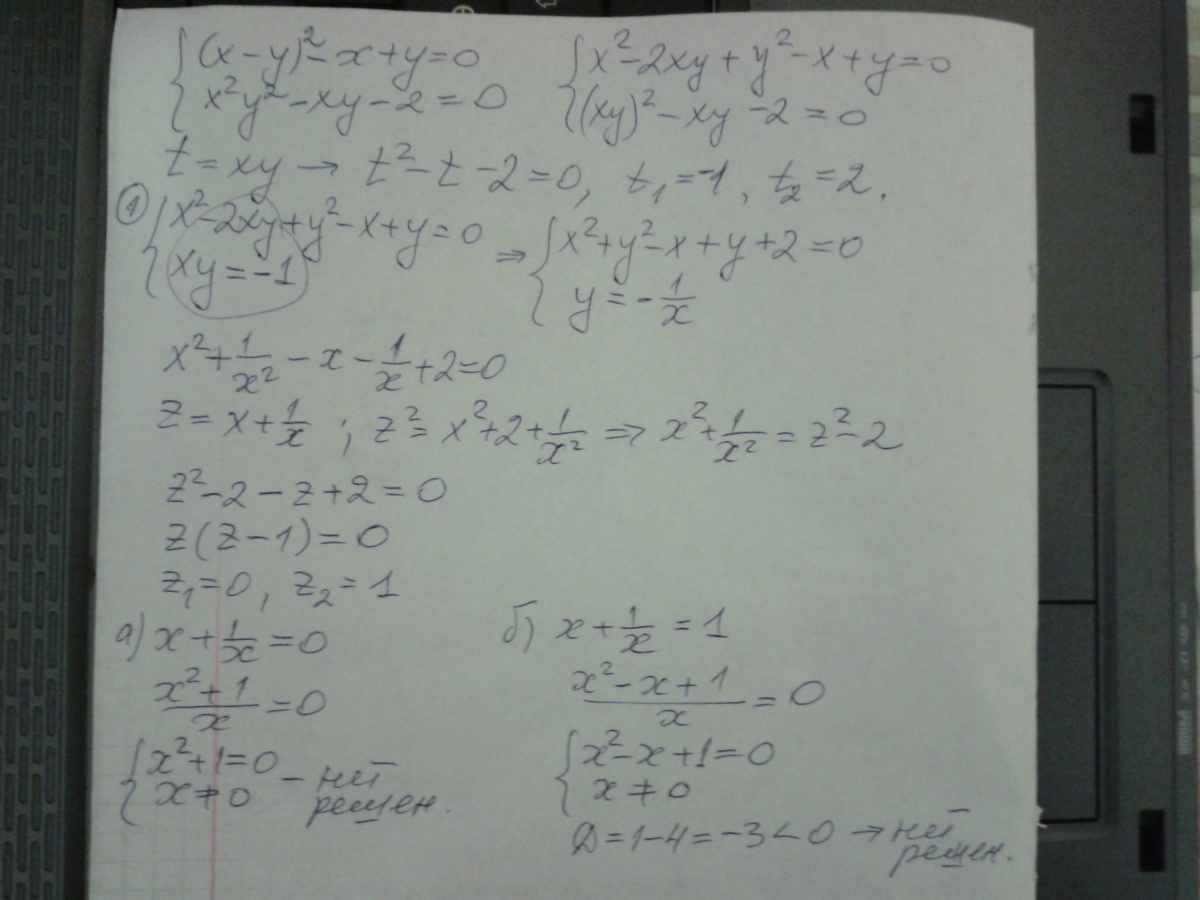 { (x-y)² - x + y = 0
{ x²y² - xy - 2 = 0
{ x² - 2xy + y² - x + y = 0
{ (xy)² - xy - 2 = 0
t = xy → t² - t - 2 = 0, t₁ = -1, t₂ = 2.
① { x² - 2xy + y² - x + y = 0
{ xy = -1
⇒ { x² + y² - x + y + 2 = 0
{ y = - 1/x
x² + 1/x² - x - 1/x + 2 = 0
z = x + 1/x ; z² = x² + 2 + 1/x² ⇒ x² + 1/x² = z² - 2
z² - 2 - z + 2 = 0
z(z - 1) = 0
z₁ = 0, z₂ = 1
а) x + 1/x = 0
(x² + 1)/x = 0
{ x² + 1 = 0
{ x ≠ 0
- нет
решен.
б) x + 1/x = 1
(x² - x + 1)/x = 0
{ x² - x + 1 = 0
{ x ≠ 0
D = 1 - 4 = -3 < 0 → нет
решен.